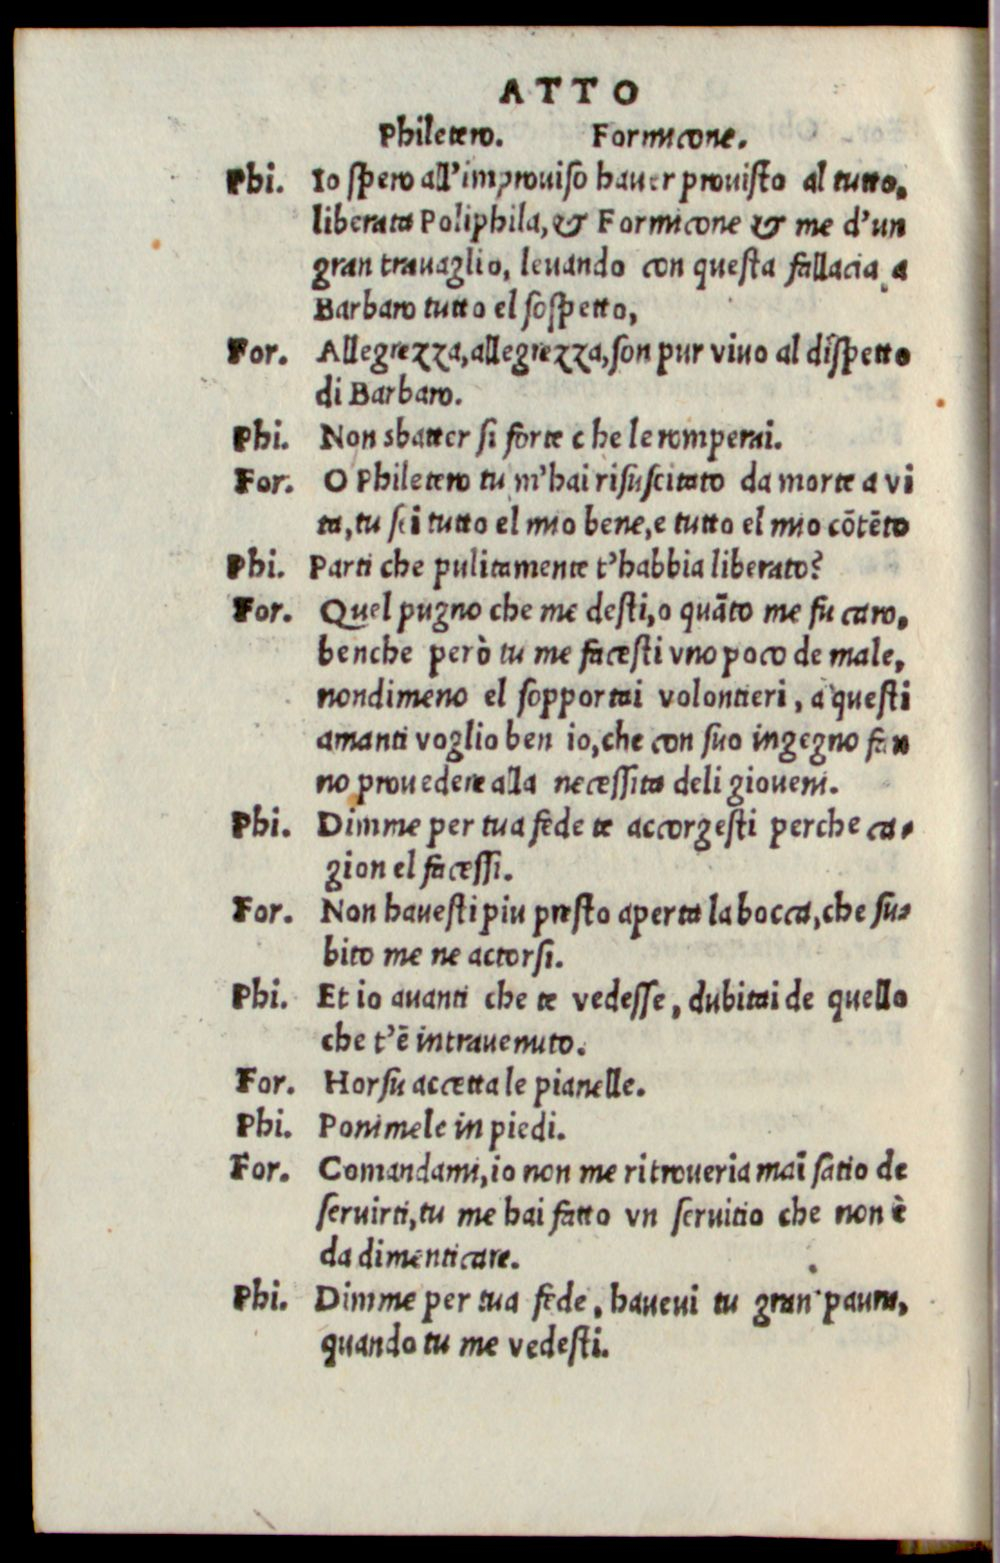 ATTO
Philetero. Formicone.
Phi. Io spero all'improuiso hauer prouisto al tutto,
liberata Poliphila, & Formicone & me d'un
gran trauaglio, leuando con questa fallacia a
Barbaro tutto el sospetto,
For. Allegrezza, allegrezza, son pur viuo al dispetto
di Barbaro.
Phi. Non sbatter si forte che le romperai.
For. O Philetero tu m'hai risuscitato da morte a vi
ta, tu sei tutto el mio bene, e tutto el mio cōtēto
Phi. Parti che pulitamente t'habbia liberato?
For. Quel pugno che me desti, o quāto me fu caro,
benche però tu me facesti vno poco de male,
nondimeno el sopportai volontieri, a questi
amanti voglio ben io, che con suo ingegno fan
no prouedere alla necessita deli gioueni.
Phi. Dimme per tua fede te accorgesti perche ca-
gion el facessi.
For. Non hauesti piu presto aperta la bocca, che su-
bito me ne actorsi.
Phi. Et io auanti che te vedesse, dubitai de quello
che t'ē intrauenuto.
For. Horsu accetta le pianelle.
Phi. Ponimele in piedi.
For. Comandami, io non me ritroueria mai satio de
seruirti, tu me hai fatto vn seruitio che non è
da dimenticare.
Phi. Dimme per tua fede, haueui tu gran paura,
quando tu me vedesti.